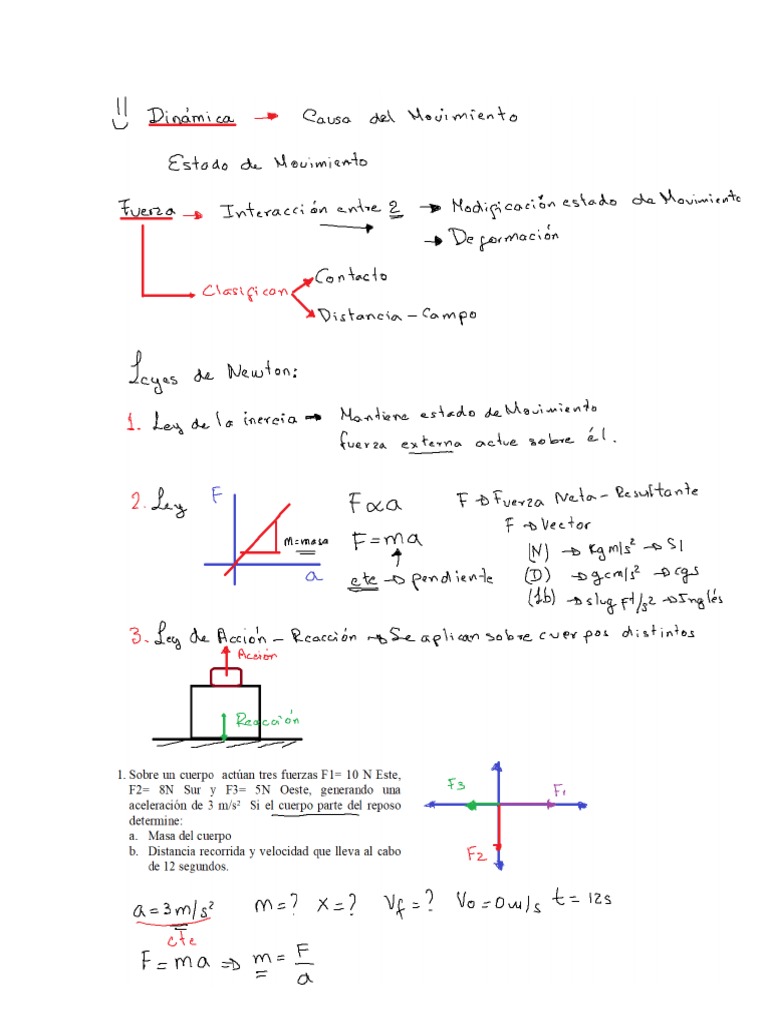 !! Dinámica → Causa del Movimiento
Estado de Movimiento
Fuerza → Interacción entre 2 → Modificación estado de Movimiento
→ Deformación
Clasifican
Contacto
Distancia - Campo
Leyes de Newton:
1. Ley de la inercia → Mantiene estado de Movimiento
fuerza externa actue sobre él.
2. Ley
F
m=masa
a
F∝a
F=ma
cte → pendiente
F → Fuerza Neta - Resultante
F → Vector
(N) → Kg m/s² → SI
(D) → g cm/s² → cgs
(lb) → slug Ft/s² → Inglés
3. Ley de Acción - Reacción → Se aplican sobre cuerpos distintos
Acción
Reacción
1. Sobre un cuerpo actúan tres fuerzas F1= 10 N Este,
F2= 8N Sur y F3= 5N Oeste, generando una
aceleración de 3 m/s² Si el cuerpo parte del reposo
determine:
a. Masa del cuerpo
b. Distancia recorrida y velocidad que lleva al cabo
de 12 segundos.
F3
F1
F2
a=3m/s² m=? x=? Vf=? Vo=0m/s t=12s
cte
F=ma ⇒ m=F/a